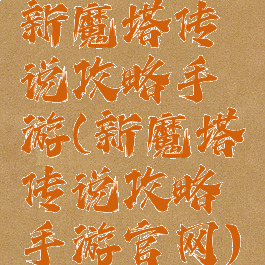 新魔塔传
说攻略手
游(新魔塔
传说攻略
手游官网)